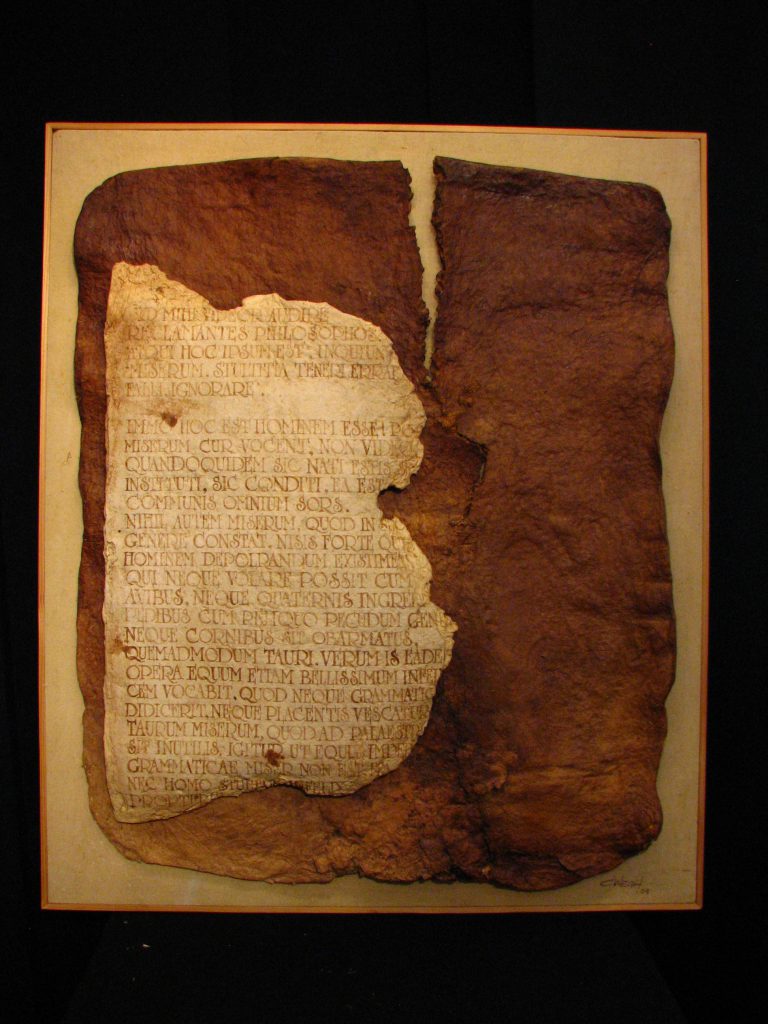 SED MIHI VIDEOR AUDIRE
RECLAMANTES PHILOSOPHOS
ATQUI HOC IPSUM EST, INQUIUN
MISERUM, STULTITIA TENERI, ERRA
FALLI, IGNORARE.
IMMO HOC EST HOMINEM ESSE. PO
MISERUM CUR VOCENT, NON VIDE
QUANDOQUIDEM SIC NATI ESTIS, SI
INSTITUTI, SIC CONDITI, EA EST
COMMUNIS OMNIUM SORS.
NIHIL AUTEM MISERUM, QUOD IN S
GENERE CONSTAT, NISIS FORTE QU
HOMINEM DEPOLRANDUM EXISTIMET
QUI NEQUE VOLARE POSSIT CUM
AVIBUS, NEQUE QUATERNIS INGRE
PEDIBUS CUM RELIQUO PECUDUM GEN
NEQUE CORNIBUS SIT OBARMATUS,
QUEMADMODUM TAURI. VERUM IS EADE
OPERA EQUUM ETIAM BELLISSIMUM INFE
CEM VOCABIT, QUOD NEQUE GRAMMATIC
DIDICERIT, NEQUE PLACENTIS VESCATUR
TAURUM MISERUM, QUOD AD PALAEST
SIT INUTILIS, IGITUR UT EQUUS IMPER
GRAMMATICAE MISER NON EST
NEC HOMO STULTUS
PROPTER